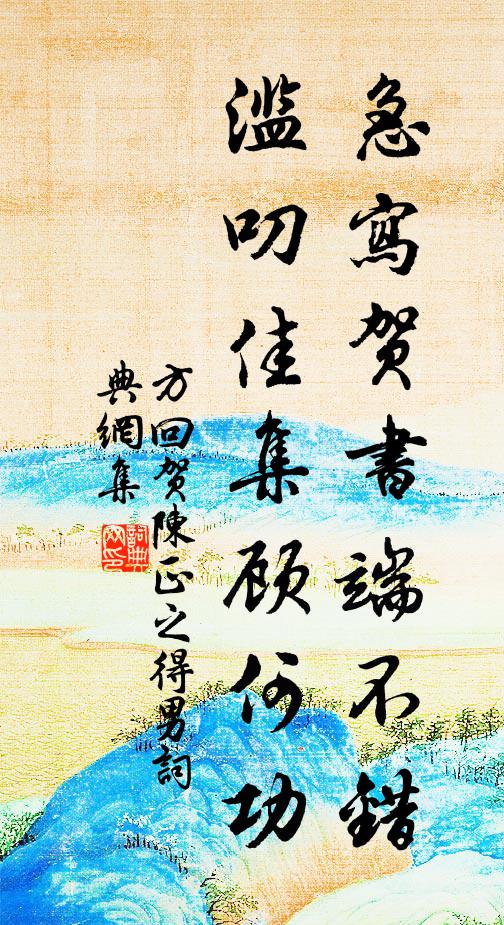 急寫賀書端不錯
濫叨佳集顧何功
方回賀陳正之得男詞
典網集
詞典網印